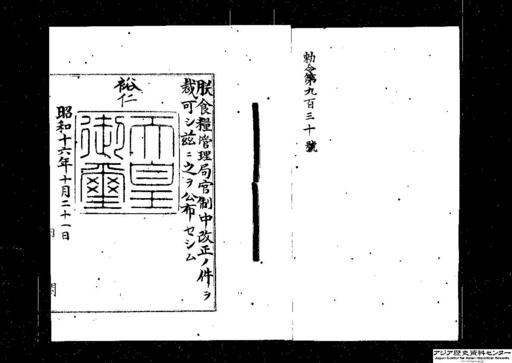 勅令第九百三十號
朕食糧管理局官制中改正ノ件ヲ
裁可シ茲ニ之ヲ公布セシム
裕仁
天皇御璽
昭和十六年十月二十一日
アジア歴史資料センター
Japan Center for Asian Historical Records